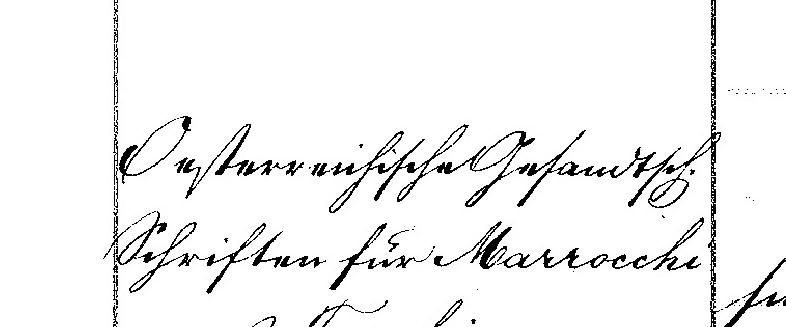 Oesterreichische Gesandtsch.
Schriften für Marrocchi